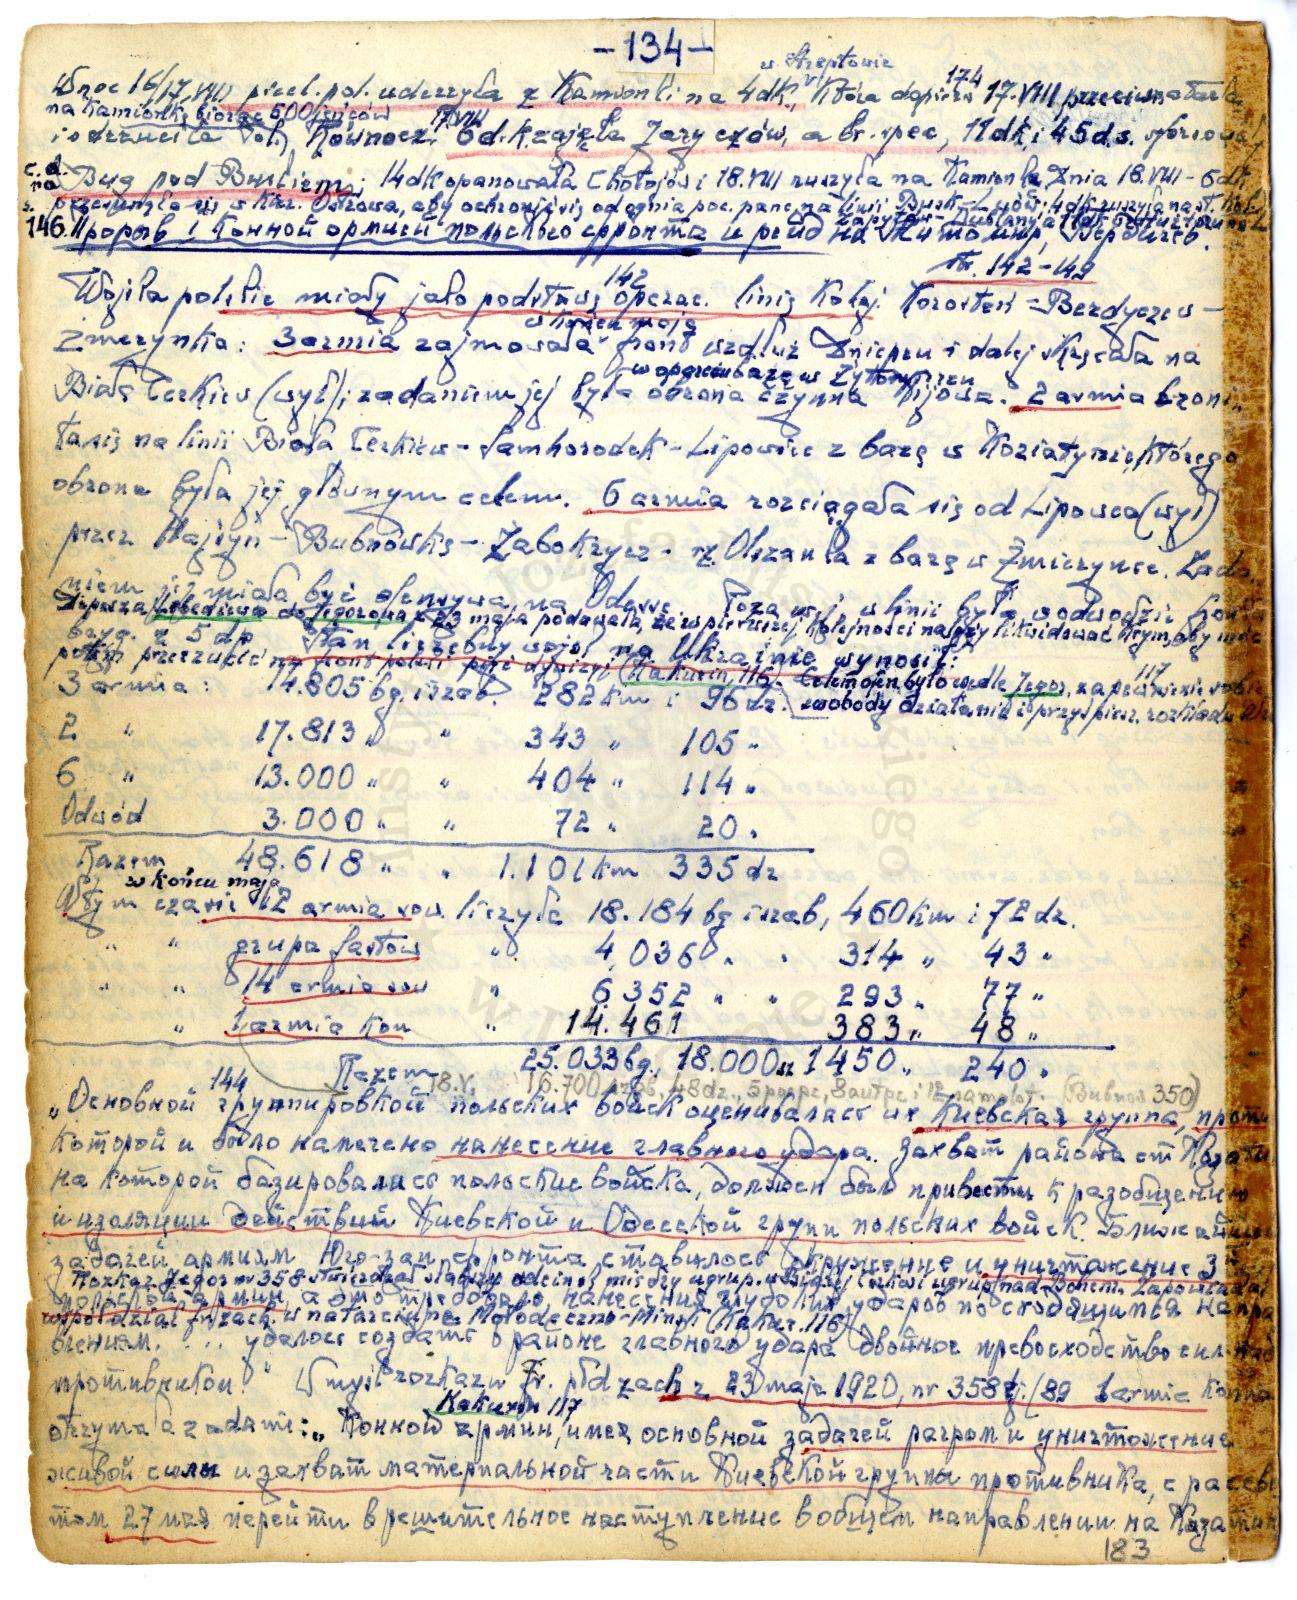 -134-
w Streptowie
W noc 16/17.VIII piech. pol. uderzyła z Kamionki na 4dk, która dopiero 17.VIII przeciwnatarła
174
na Kamionkę biorąc 600 jeńców 17.VIII
i odrzuciła Pol. Równocz. 6d.k. zajęła Jaryczów, a br. spec, 11dk i 45ds.
c.d. na
Bug pod Buskiem, 14dk opanowała Chołojów i 18.VIII ruszyła na Kamionkę. Dnia 18.VIII - 6dk
przesunęła się w kier. Ostrowa, aby ochronić się od ognia poc. panc. na linii Busk-Lwów; 4dk ruszyła na st. kol.
146. Прорыв 1 Конной армией польского фронта и рейд на Житомир, Бердичев.
str. 142-149
142
Wojska polskie miały jako podstawę operac. linię kolej. Korosteń - Berdyczew -
w końcu maja
Żmerynka: 3 armia zajmowała front wzdłuż Dniepru i dalej skręcała na
w oparciu bazę w Żytomierzu
Białą Cerkiew (wył); zadaniem jej była obrona czynna Kijowa. 2 armia broni-
ła się na linii Biała Cerkiew - Samhorodek - Lipowiec z bazą w Koziatynie, którego
obrona była jej głównym celem. 6 armia rozciągała się od Lipowca (wył)
przez Hajsyn - Bubnówkę - Zabokrzycz - rz. Olszanka z bazą w Żmierzynce. Zada-
niem jej miała być ofensywa na Odessę. Poza wsj. w linii była w odwodzie
Depesza Lebiediewa do Jegorowa z 23 maja podawała, że w pierwszej kolejności należy likwidować Krym, aby móc
bryg. z 5 dp Stan liczebny wojsk na Ukrainie wynosił:
potem przerzucić na front polski (Kakurin, 116. Celem ofen. było wedle Jegor. zapewnienie sobie
117
3 armia: 14.805 bg. i szab. 282 km i 96 dz. swobody działania i przyśpiesz. rozkładu
2 " 17.813 " " 343 " 105 "
6 " 13.000 " " 404 " 114 "
Odwód 3.000 " " 72 " 20 "
Razem 48.618 " " 1.101 km 335 dz
w końcu maja
W tym czasie 12 armia sow. liczyła 18.184 bg i szab, 460 km i 72 dz.
" " grupa Fastow " 4,036 " " 314 " 43 "
" " 14 armia sow " 6352 " " 293 " 77 "
" 1 armia kon " 14.461 383 " 48 "
Razem 25.033 bg, 18.000 sz 1450 " 240 "
18.V. 16.700 szab, 48 dz., 5 pocpc, 8 autpc i 12 samolot. (Bubnow 350)
144
„Основной группировкой польских войск оценивалась их Киевская группа, проти
которой и было намечено нанесение главного удара. Захват района ст Казати
на которой базировались польские войска, должен был привести к разобщению
и изоляции действий Киевской и Одесской групп польских войск. Ближайшей
задачей армиям Юго-зап. фронта ставилось окружение и уничтожение 3
Rozkaz Jegor nr 358 stwierdzał słabszy odcinek między ugrup. w Białej Cerkwi i ugrup nad Bohem. Zapowiadał
польской армии, а это требовало нанесения ударов по сходящимся напра
współdział fr. zach. w natarciu na Mołodeczno-Mińsk (Kakur. 116)
влениям. ... удалось создать в районе главного удара двойное превосходство сил над
противником." W myśl rozkazu Fr. płdzach z 23 maja 1920, nr 358 (89 1 armia konna
Kakurin 117
otrzymała zadanie: „Конной армии, имея основной задачей разгром и уничтожение
живой силы и захват материальной части Киевской группы противника, с рассве
том 27 мая перейти в решительное наступление в общем направлении на Казатин
183